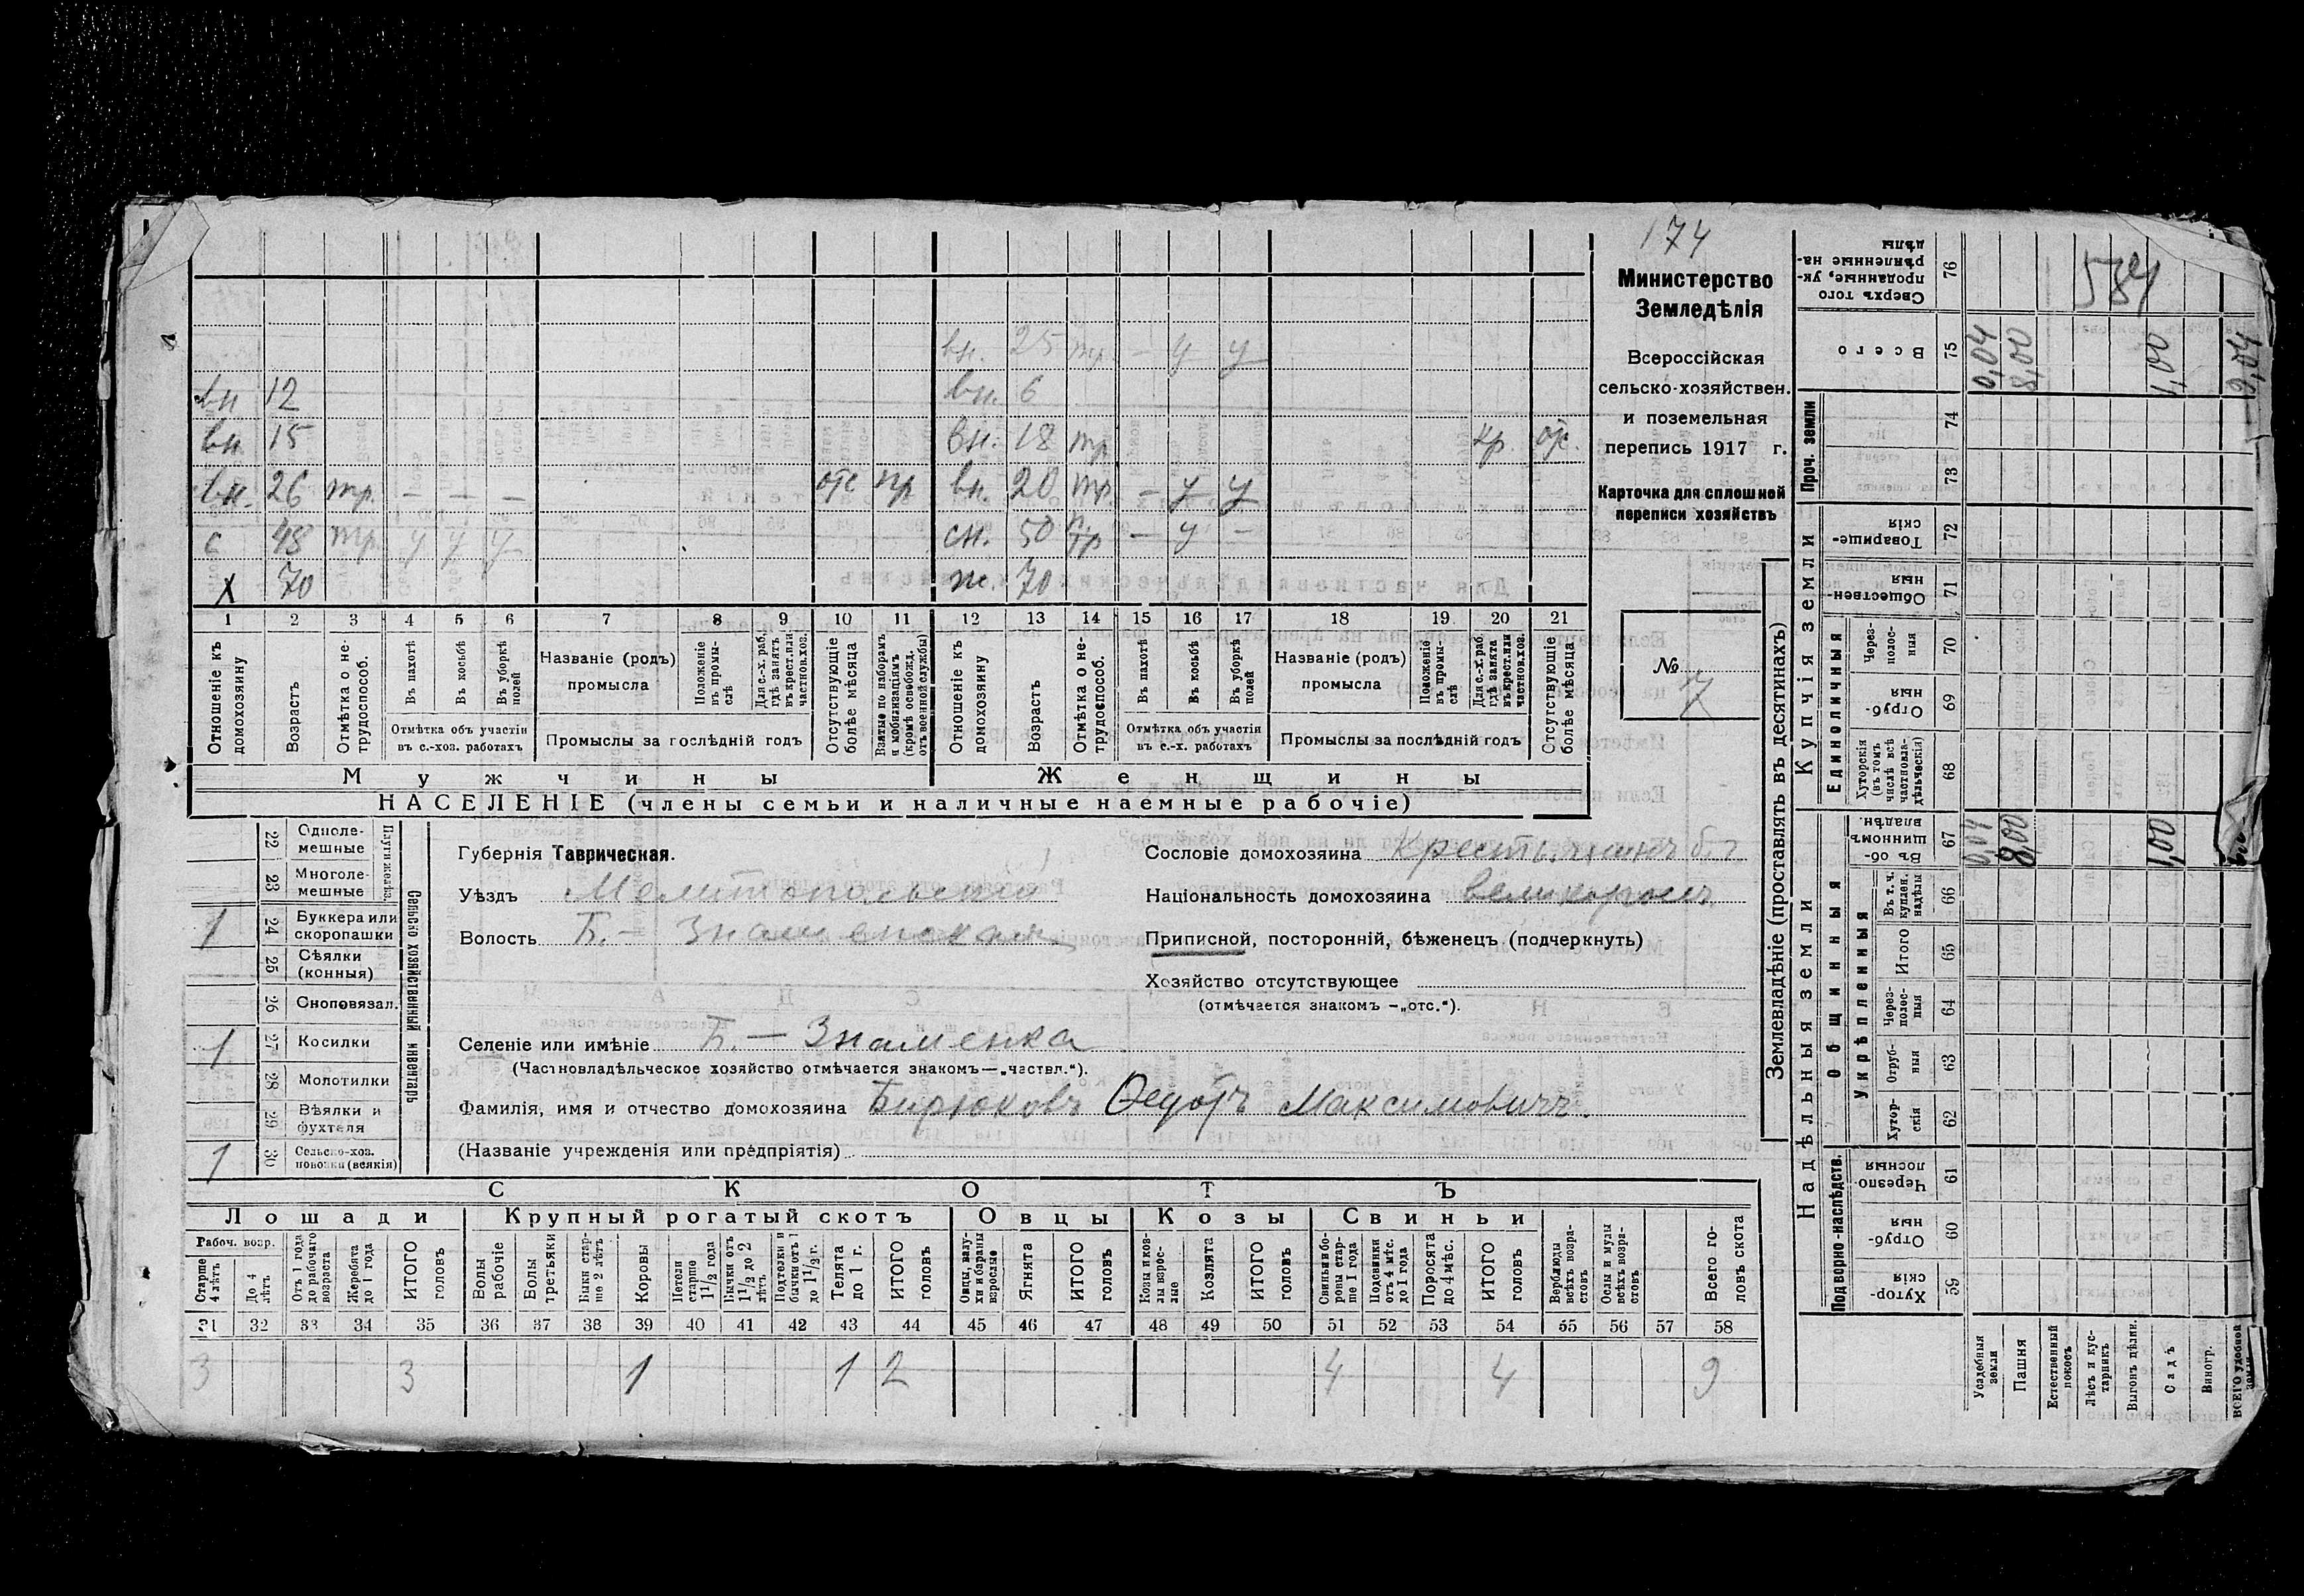 174
Министерство
Земледѣлія
Всероссійская
сельско-хозяйствен.
и поземельная
перепись 1917 г.
Карточка для сплошной
переписи хозяйствъ
№
7
вн. 25 тр. - у у
вн 12 вн. 6
вн. 15 вн. 18 тр кр. отс.
вн. 26 тр. - - - отс пр вн. 20 тр. - у у
с 48 тр. у у у сн. 50 - у -
х 70 ж. 70
1 2 3 4 5 6 7 8 9 10 11 12 13 14 15 16 17 18 19 20 21
Отношеніе къ домохозяину
Возрастъ
Отмѣтка о не-трудоспособ.
Въ пахотѣ
Въ косьбѣ
Въ уборкѣ полей
Отмѣтка объ участіи въ с.-хоз. работахъ
Названіе (родъ) промысла
Положеніе въ промы-слѣ
Для с.-х. раб., гдѣ занятъ въ крест. или частнов. хоз.
Промыслы за послѣдній годъ
Отсутствующіе болѣе мѣсяца
Взятые по наборамъ и мобилизаціямъ (кромѣ освобожд. отъ военной службы)
Отношеніе къ домохозяину
Возрастъ
Отмѣтка о не-трудоспособ.
Въ пахотѣ
Въ косьбѣ
Въ уборкѣ полей
Отмѣтка объ участіи въ с.-х. работахъ
Названіе (родъ) промысла
Положеніе въ промы-слѣ
Для с.-х. раб. гдѣ занята въ крест. или частнов. хоз.
Промыслы за послѣдній годъ
Отсутствующіе болѣе мѣсяца
Мужчины Женщины
НАСЕЛЕНІЕ (члены семьи и наличные наемные рабочіе)
Сельско хозяйственный инвентарь
22 Одноле-мешные
23 Многоле-мешные
1 24 Буккера или скоропашки
25 Сѣялки (конныя)
26 Сноповязал.
1 27 Косилки
28 Молотилки
29 Вѣялки и фухтеля
1 30 Сельско-хоз. повозки (всякія)
Губернія Таврическая.
Уѣздъ Мелитопольскій
Волость Б.- Знаменская
Сословіе домохозяина Крестьянинъ
Національность домохозяина великороссъ
Приписной, посторонній, бѣженецъ (подчеркнуть)
Хозяйство отсутствующее
(отмѣчается знакомъ -„отс.“).
Селеніе или имѣніе Б.- Знаменка
(Частновладѣльческое хозяйство отмѣчается знакомъ—„частвл.“).
Фамилія, имя и отчество домохозяина Бирюковъ Ѳедотъ Максимовичъ.
(Названіе учрежденія или предпріятія)
СКОТЪ
Лошади Крупный рогатый скотъ Овцы Козы Свиньи
Рабоч. возр.
Старше 4 лѣтъ
До 4 лѣтъ
Отъ 1 года до рабочаго возраста
Жеребята до 1 года
ИТОГО головъ
Волы рабочіе
Волы третьяки
Быки стар-ше 2 лѣтъ
Коровы
Нетели старше 1 1/2 года
Бычки отъ 1 1/2 до 2 лѣтъ
Подтелки и бычки отъ 1 до 1 1/2 г.
Телята до 1 г.
ИТОГО головъ
Овцы, валу-хи и бараны взрослые
Ягнята
ИТОГО головъ
Козы и коз-лы взрос-лые
Козлята
ИТОГО головъ
Свиньи и бо-ровы стар-ше 1 года
Подсвинки отъ 4 мѣс. до 1 года
Поросята до 4 мѣс.
ИТОГО головъ
Верблюды всѣхъ возра-стовъ
Ослы и мулы всѣхъ возра-стовъ
Всего го-ловъ скота
31 32 33 34 35 36 37 38 39 40 41 42 43 44 45 46 47 48 49 50 51 52 53 54 55 56 57 58
3 3 1 1 2 4 4 9
Землевладѣніе (проставлять въ десятинахъ)
Надѣльныя земли
Купчія земли
Проч. земли
Подворно-наслѣдств.
Общинныя
Укрѣпленныя
Единоличныя
Сверхъ того проданные, ук-рѣпленные на-дѣлы 76
584
Всего 75 0,04 8,00 1,00 9,04
74
73
Товарище-скія 72
Обществен-ныя 71
Через-полос-ныя 70
Отруб-ныя 69
Хуторскія (въ томъ числѣ всѣ частновла-дѣльческія) 68
Въ об-щинномъ владѣн. 67 0,04 8,00 1,00
Въ т. ч. куплен. надѣлы 66
Итого 65
Через-полос-ныя 64
Отруб-ныя 63
Хутор-скія 62
Черезпо-лосныя 61
Отруб-ныя 60
Хутор-скія 59
Усадебныя земли
Пашня
Естественный покосъ
Лѣсъ и кус-тарникъ
Выгонъ дѣлим.
Садъ
Виногр.
ВСЕГО удобной земли